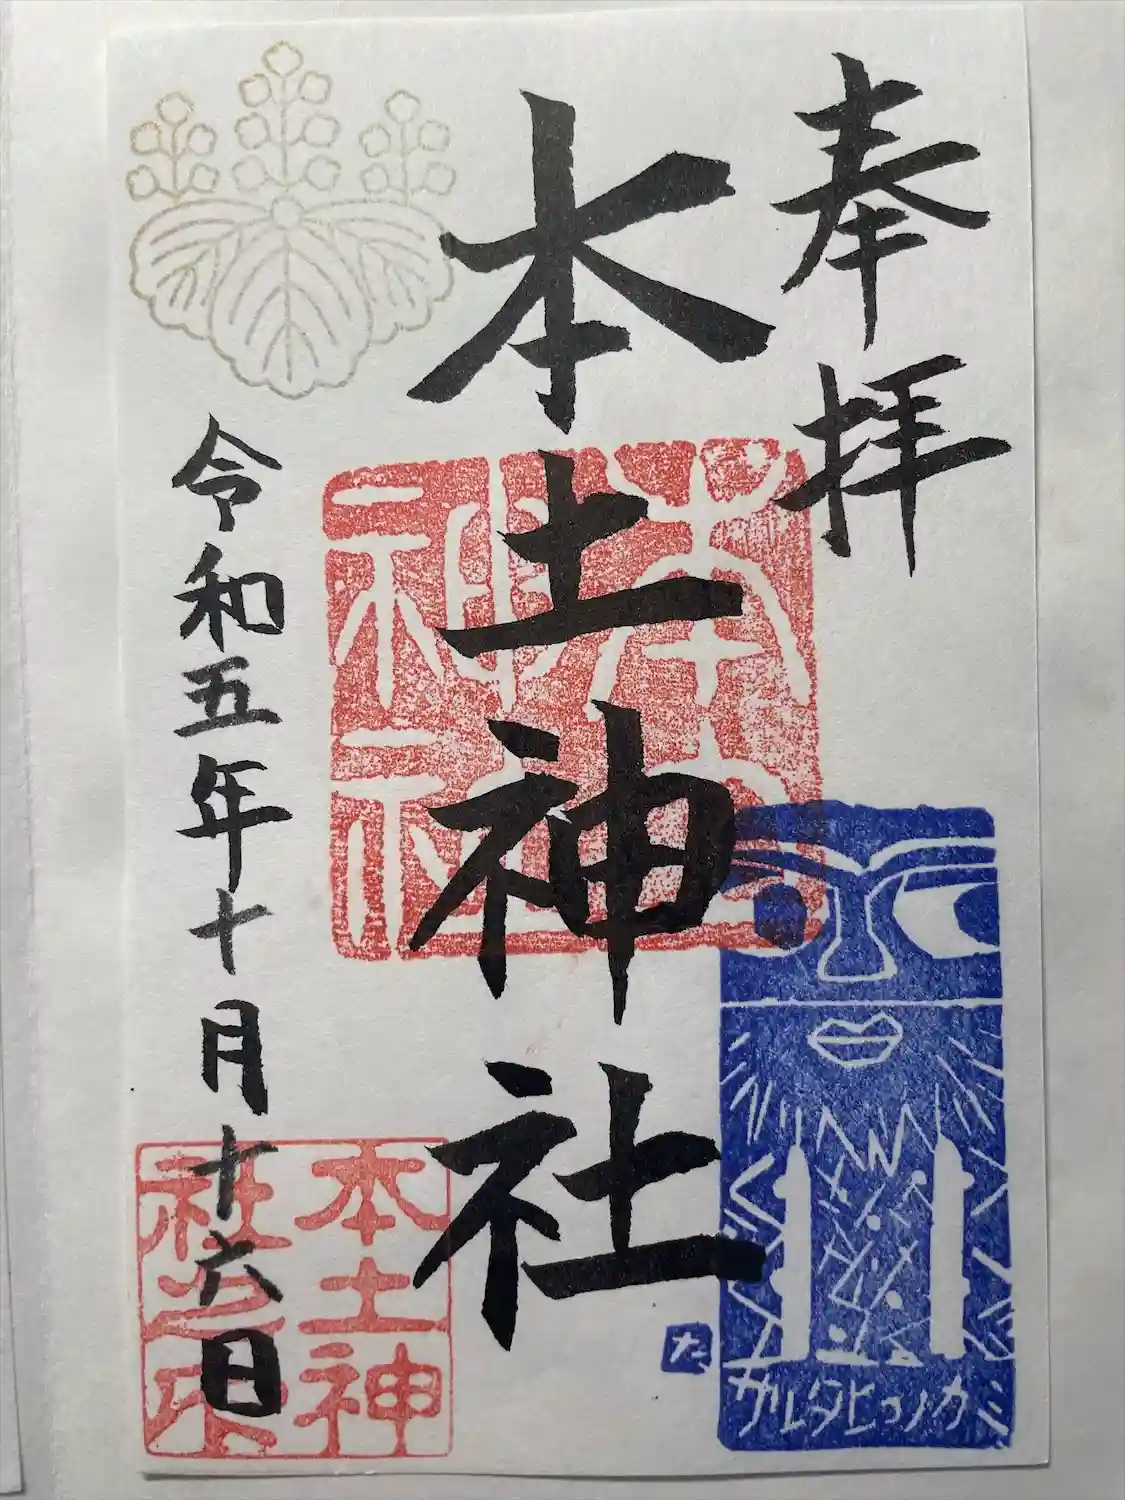 奉拝
本土神社
本土神社
サルタヒコノカミ
た
令和五年十月十六日
本土神社之印